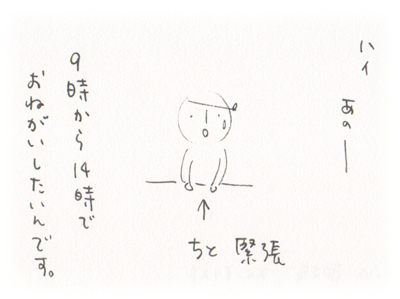 ハイ あのー
9時から14時で
おねがいしたいんです。
ちと 緊張